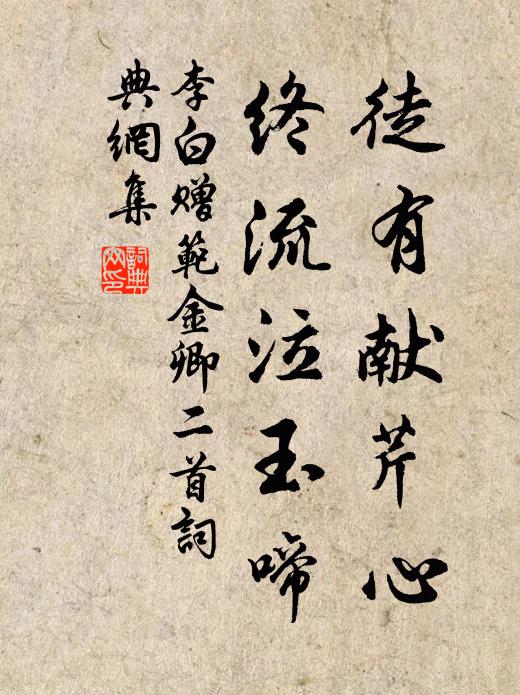 徒有献芹心
终流泣玉啼
李白赠範金卿二首詞
典網集